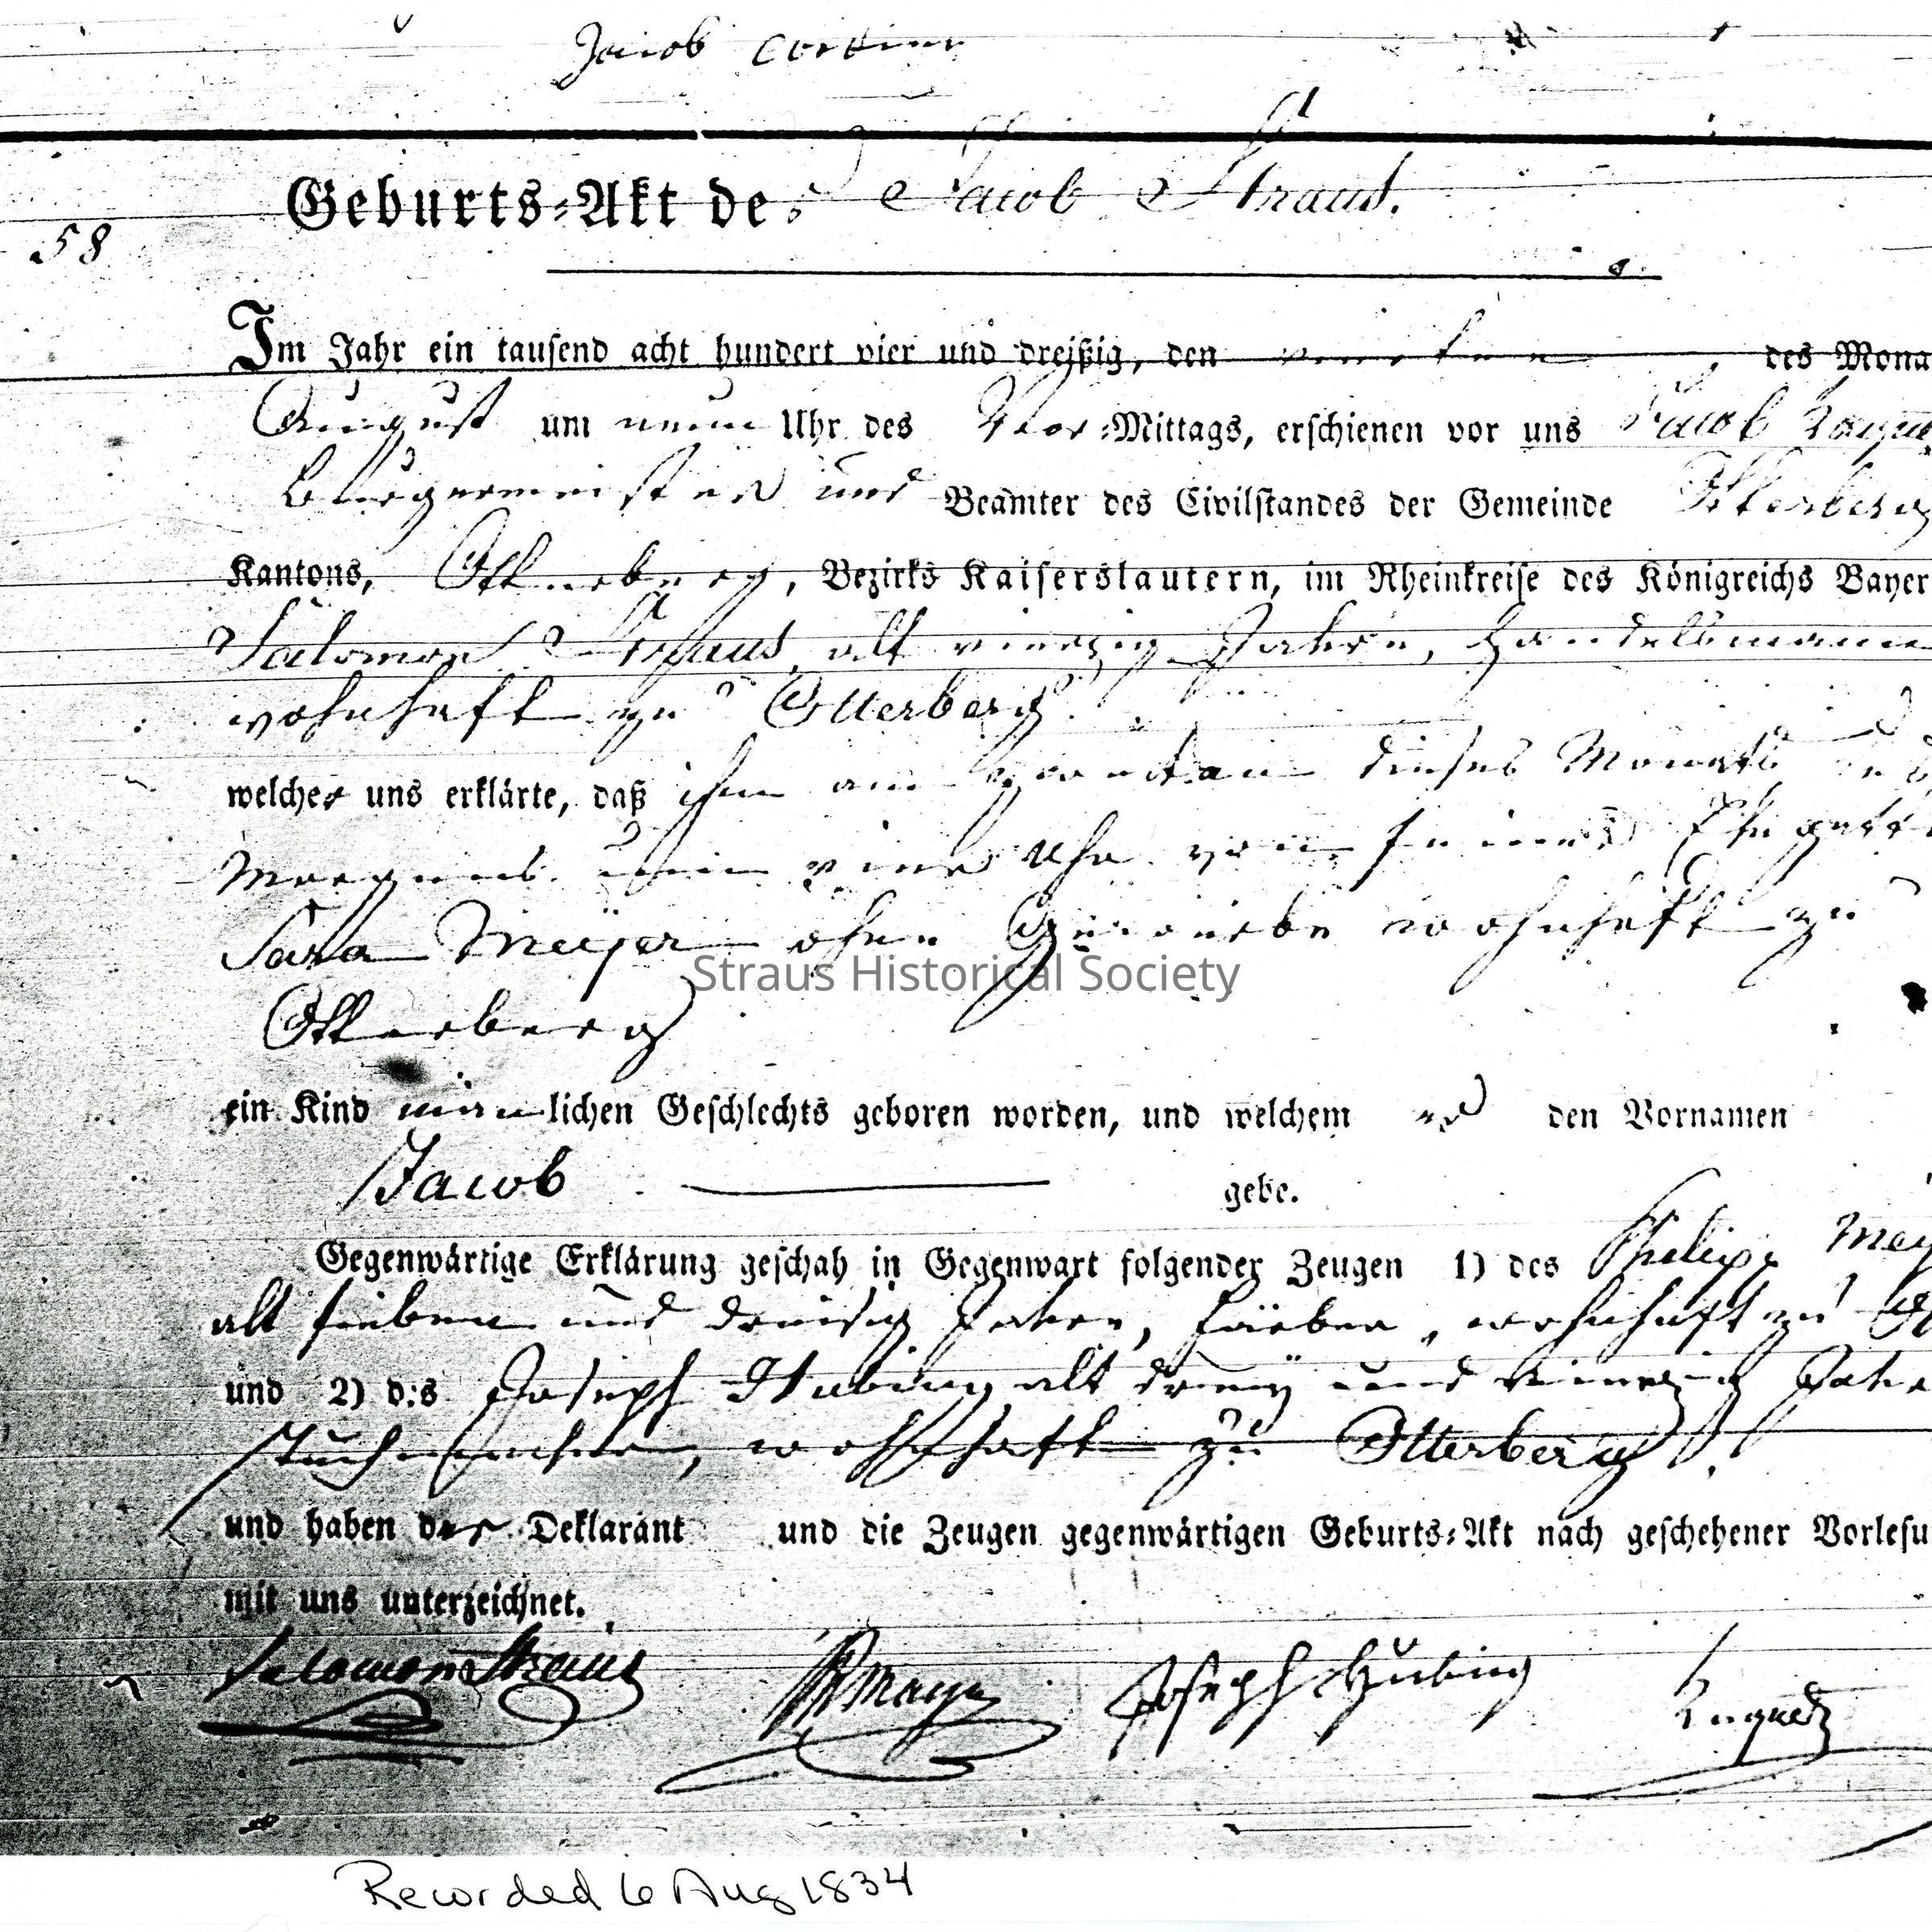 Jacob
Geburts-Akt des Jacob Straus.
58
Im Jahr ein tausend acht hundert vier und dreißig, den des Mona
August um neun Uhr des Vor-Mittags, erschienen vor uns Jacob
Bürgermeister und Beamter des Civilstandes der Gemeinde Otterberg
Kantons, Otterberg, Bezirks Kaiserslautern, im Rheinkreise des Königreichs Bayer
Salomon Straus, alt vierzig Jahre, Handelsmann
wohnhaft zu Otterberg.
welcher uns erklärte, daß ihm am zweiten dieses Monats des
Morgens um vier Uhr von seiner Ehegatt
Sara Meÿer ohne Gewerbe wohnhaft zu
Straus Historical Society
Otterberg
ein Kind männlichen Geschlechts geboren worden, und welchem er den Vornamen
Jacob gebe.
Gegenwärtige Erklärung geschah in Gegenwart folgender Zeugen 1) des Philipp Mey
alt sieben und dreisig Jahre, Färber, wohnhaft zu Ot
und 2) des Joseph Hubing alt dreÿ und vierzig Jahre
Tuchmacher, wohnhaft zu Otterberg.
und haben der Deklarant und die Zeugen gegenwärtigen Geburts-Akt nach geschehener Vorlesu
mit uns unterzeichnet.
Salomon Straus Joseph Hubing
Recorded 6 Aug 1834